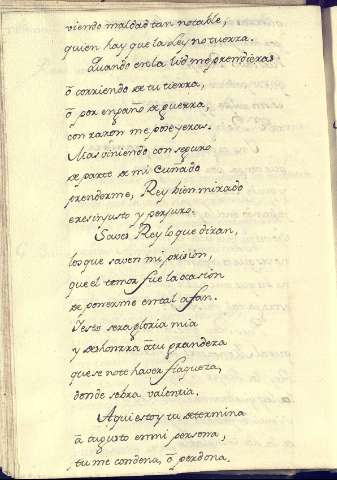 viendo maldad tan notable,
quien hay que la Ley no tuerza.
Quando en la lid me prendieras
ò corriendo de tu tierra,
ò por engaño de guerra,
con razon me poseyeras.
Mas viniendo con seguro
de parte de mi Cuñado
prenderme, Rey bien mirado
eres injusto y perjuro.
Saves Rey lo que diran,
los que saven mi prision,
que el temor fue la ocasion
de ponerme en tal afan.
Y esto sera gloria mia
y deshonrra à tu grandeza
que se note haver flaqueza,
donde sobra valentia.
Aqui estoy tu determina
à augusto en mi persona,
tu me condena, ò perdona.